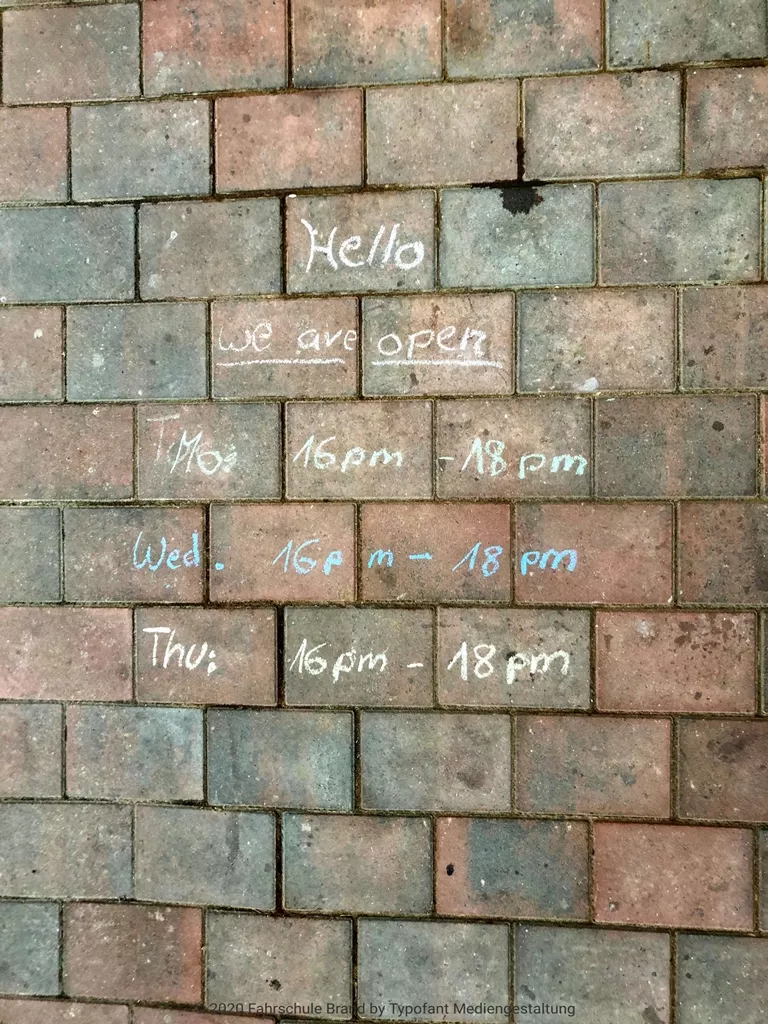 Hello
we are open
Mo: 16pm - 18pm
Wed. 16pm - 18pm
Thu: 16pm - 18pm
2020 Fahrschule Brand by Typofant Mediengestaltung